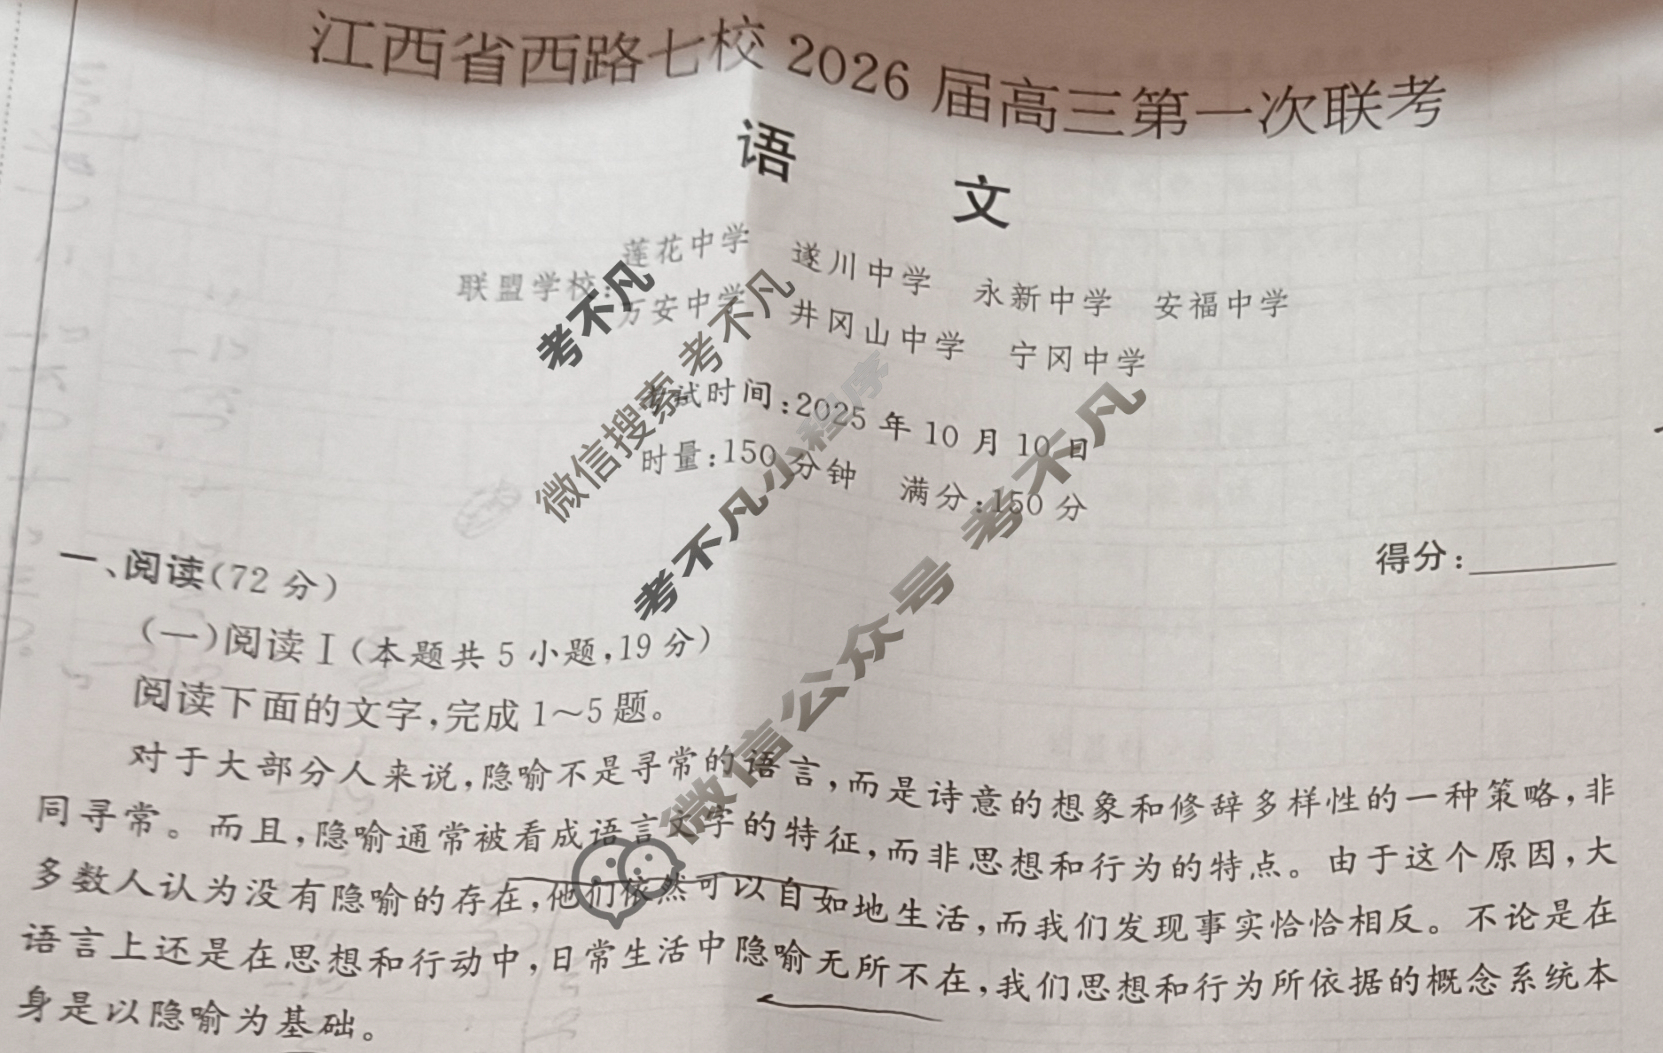 江西省西路七校 2026 届高三第一次联考
语 文
联盟学校:莲花中学 遂川中学 永新中学 安福中学
万安中学 井冈山中学 宁冈中学
考试时间:2025 年 10 月 10 日
时量:150 分钟 满分:150 分
得分:
一、阅读(72 分)
(一)阅读 I(本题共 5 小题,19 分)
阅读下面的文字,完成 1~5 题。
对于大部分人来说,隐喻不是寻常的语言,而是诗意的想象和修辞多样性的一种策略,非
同寻常。而且,隐喻通常被看成语言文字的特征,而非思想和行为的特点。由于这个原因,大
多数人认为没有隐喻的存在,他们依然可以自如地生活,而我们发现事实恰恰相反。不论是在
语言上还是在思想和行动中,日常生活中隐喻无所不在,我们思想和行为所依据的概念系统本
身是以隐喻为基础。
考不凡
微信搜索 考不凡
考不凡小程序
微信公众号 考不凡